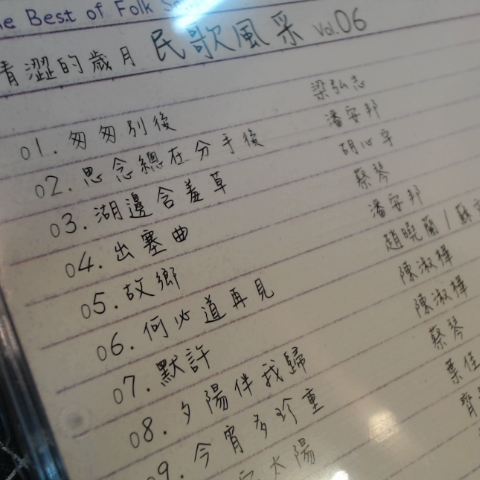 he Best of Folk S
青澀的歲月 民歌風采 Vol.06
01. 匆匆別後 梁弘志
02. 思念總在分手後 潘安邦
03. 湖邊含羞草 胡心亭
04. 出塞曲 蔡琴
05. 故鄉 潘安邦
06. 何必道再見 趙曉蘭 /
07. 默許 陳淑樺
08. 夕陽伴我歸 陳淑樺
09. 今宵多珍重 蔡琴
太陽 葉佳
齊